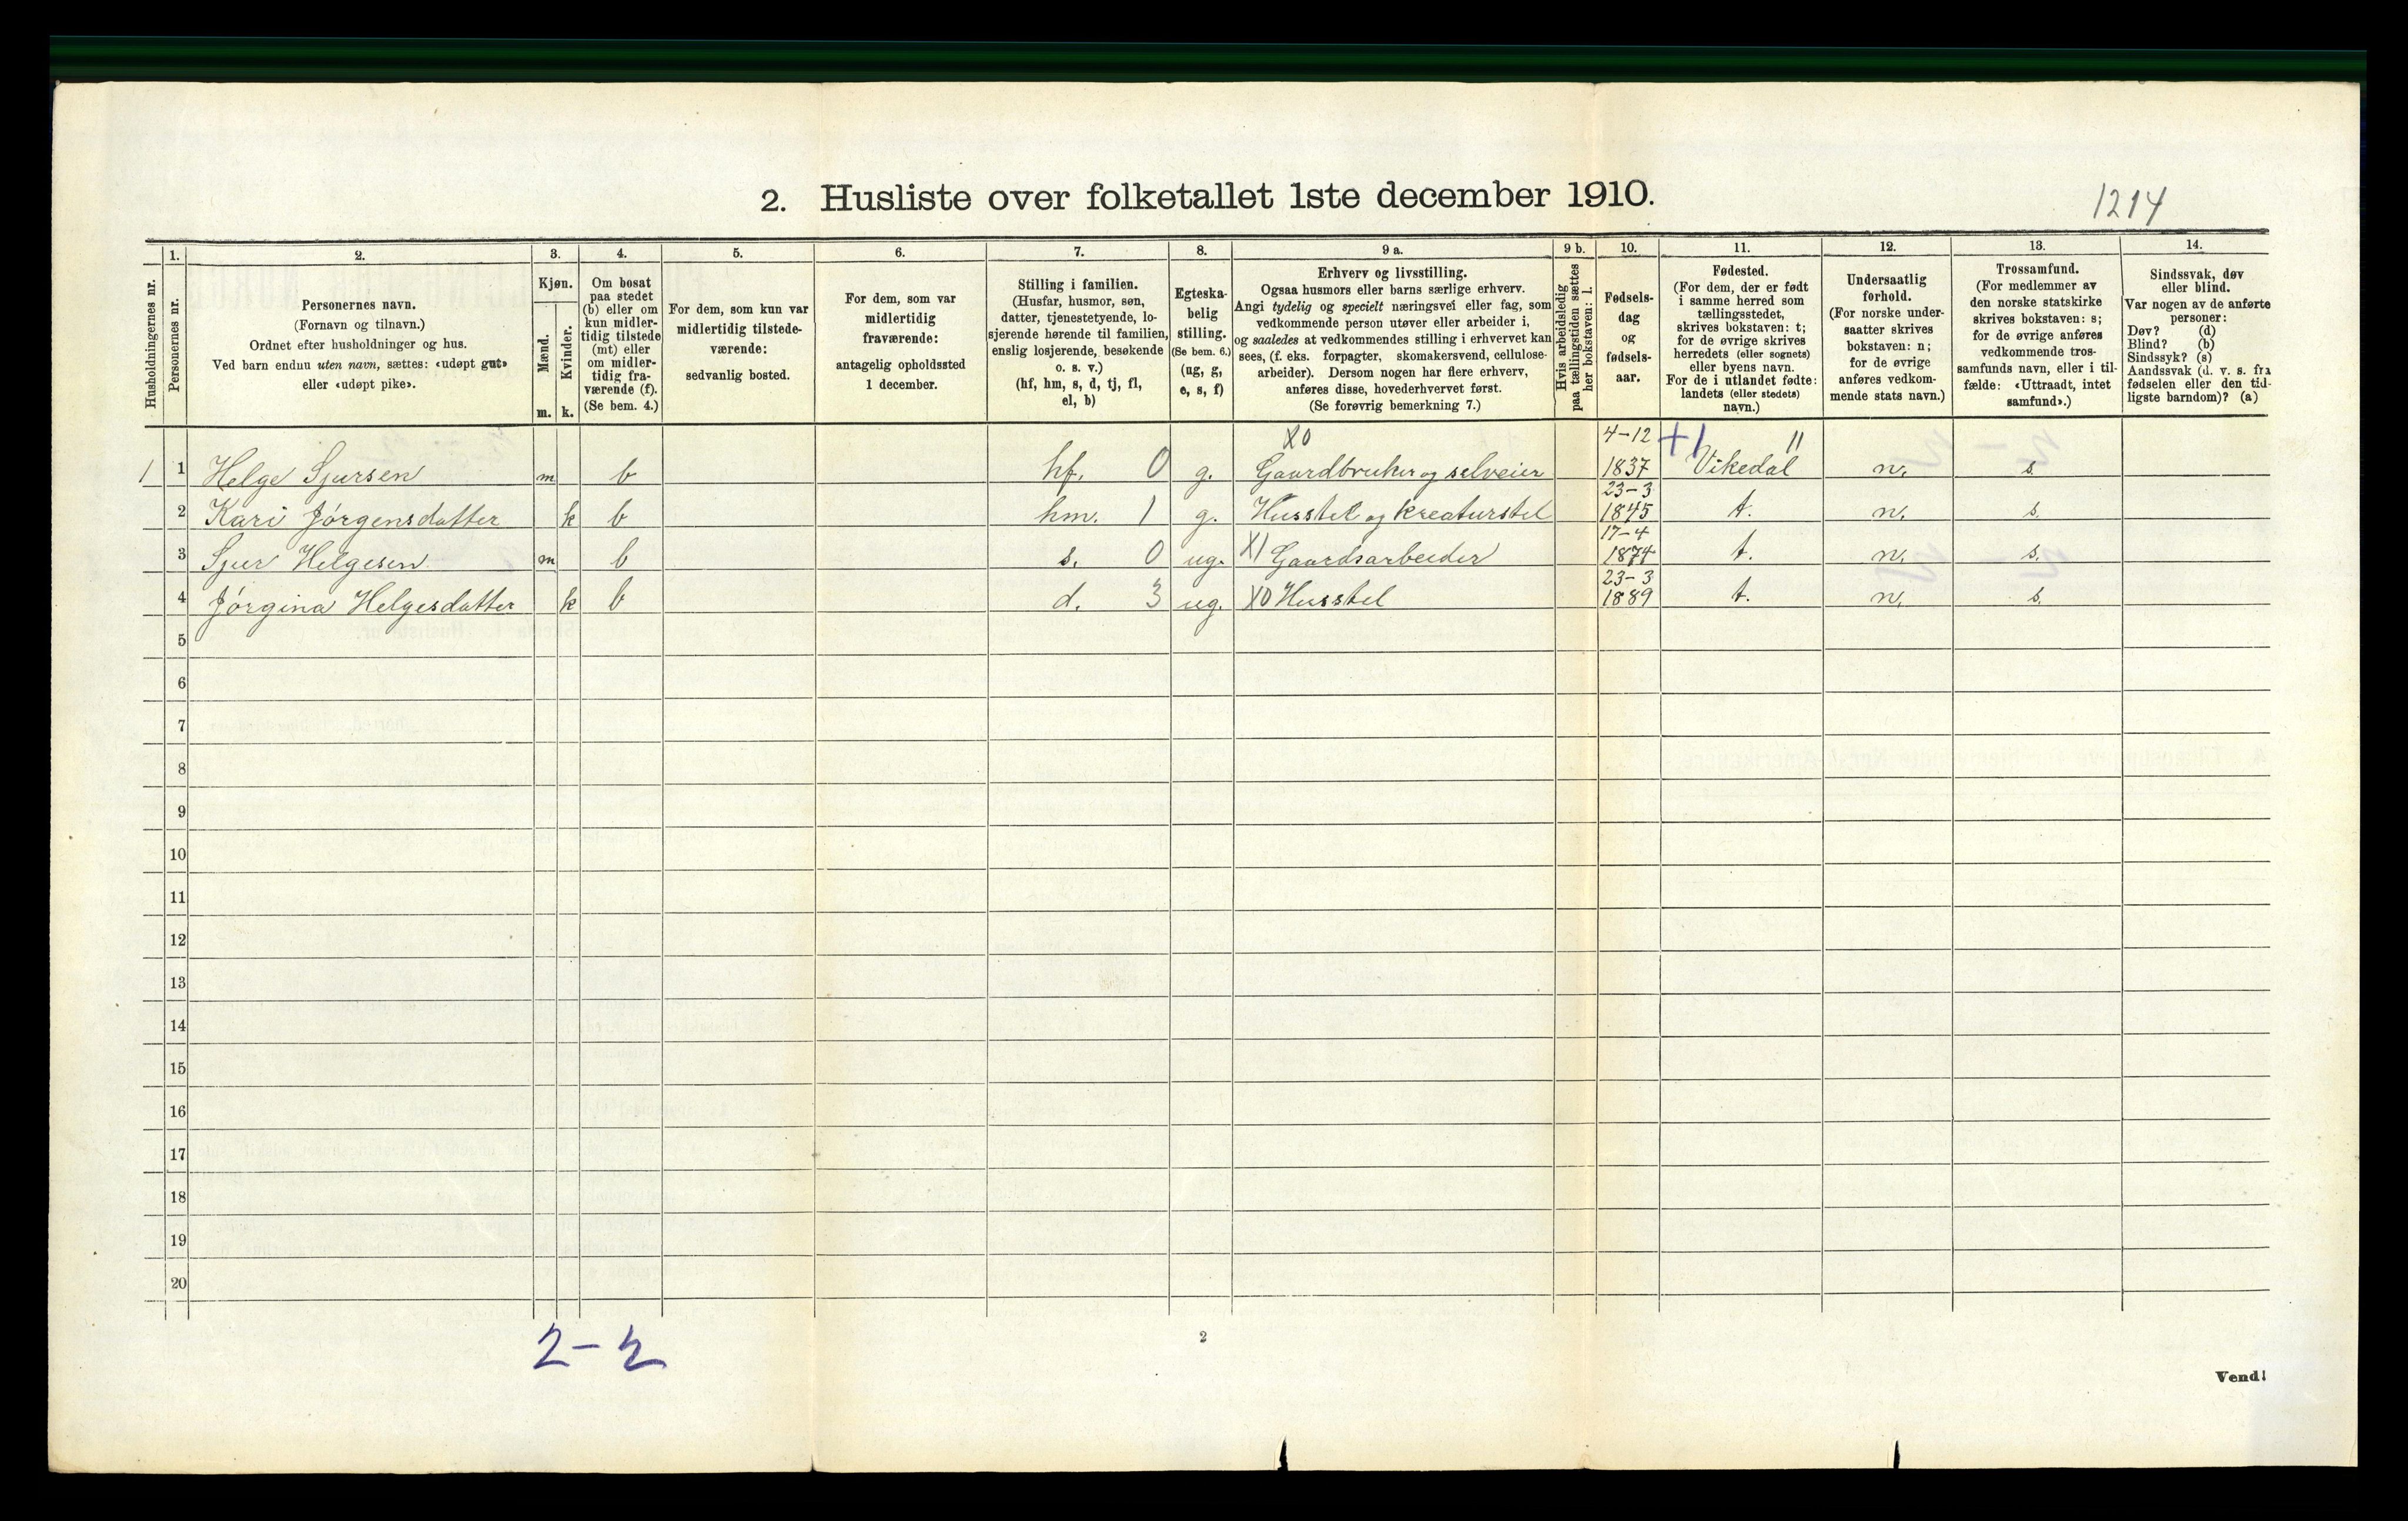 2. Husliste over folketallet 1ste december 1910.
1214
Husholdningernes nr.
1.
Personernes nr.
2.
Personernes navn.
(Fornavn og tilnavn.)
Ordnet efter husholdninger og hus.
Ved barn endnu uten navn, sættes: «udøpt gut»
eller «udøpt pike».
3.
Kjøn.
Mænd.
m.
Kvinder.
k.
4.
Om bosat
paa stedet
(b) eller om
kun midler-
tidig tilstede
(mt) eller
om midler-
tidig fra-
værende (f).
(Se bem. 4.)
5.
For dem, som kun var
midlertidig tilstede-
værende:
sedvanlig bosted.
6.
For dem, som var
midlertidig
fraværende:
antagelig opholdssted
1 december.
7.
Stilling i familien.
(Husfar, husmor, søn,
datter, tjenestetyende, lo-
sjerende hørende til familien,
enslig losjerende, besøkende
o. s. v.)
(hf, hm, s, d, tj, fl,
el, b)
8.
Egteska-
belig
stilling.
(Se bem. 6.)
(ug, g,
e, s, f)
9 a.
Erhverv og livsstilling.
Ogsaa husmors eller barns særlige erhverv.
Angi tydelig og specielt næringsvei eller fag, som
vedkommende person utøver eller arbeider i,
og saaledes at vedkommendes stilling i erhvervet kan
sees, (f. eks. forpagter, skomakersvend, cellulose-
arbeider). Dersom nogen har flere erhverv,
anføres disse, hovederhvervet først.
(Se forøvrig bemerkning 7.)
9 b.
Hvis arbeidsledig
paa tællingstiden sættes
her bokstaven: l.
10.
Fødsels-
dag
og
fødsels-
aar.
11.
Fødested.
(For dem, der er født
i samme herred som
tællingsstedet,
skrives bokstaven: t;
for de øvrige skrives
herredets (eller sognets)
eller byens navn.
For de i utlandet fødte:
landets (eller stedets)
navn.)
12.
Undersaatlig
forhold.
(For norske under-
saatter skrives
bokstaven: n;
for de øvrige
anføres vedkom-
mende stats navn.)
13.
Trossamfund.
(For medlemmer av
den norske statskirke
skrives bokstaven: s;
for de øvrige anføres
vedkommende tros-
samfunds navn, eller i til-
fælde: «Uttraadt, intet
samfund».)
14.
Sindssvak, døv
eller blind.
Var nogen av de anførte
personer:
Døv? (d)
Blind? (b)
Sindssyk? (s)
Aandssvak (d. v. s. fra
fødselen eller den tid-
ligste barndom)? (a)
X0 4-12 +1 11
1 1 Helge Sjursen m b hf. 0 g. Gaardbruker og selveier 1837 Vikedal n. s.
23-3
2 Kari Jørgensdatter k b hm. 1 g. Husstel og kreaturstel 1845 t. n. s.
17-4
3 Sjur Helgesen m b s. 0 ug. X1 Gaardsarbeider 1874 t. n. s.
23-3
4 Jørgina Helgesdatter k b d. 3 ug. X0 Husstel 1889 t. n. s.
5
6
7
8
9
10
11
12
13
14
15
16
17
18
19
20
2-2
2
Vend!